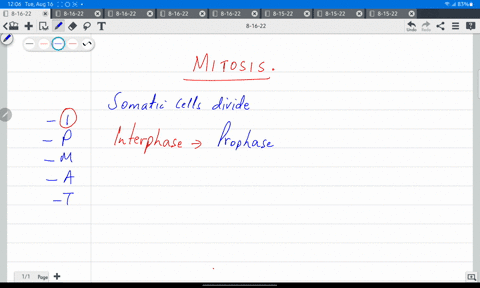 12:06 Tue, Aug 16
87%
8-16-22 8-16-22 8-15-22 8-15-22 8-15-22 8-15-22
8-16-22
Undo Redo
MITOSIS.
Somatic cells divide
- I
- P
Interphase → Prophase
- M
- A
- T
1/1 Page